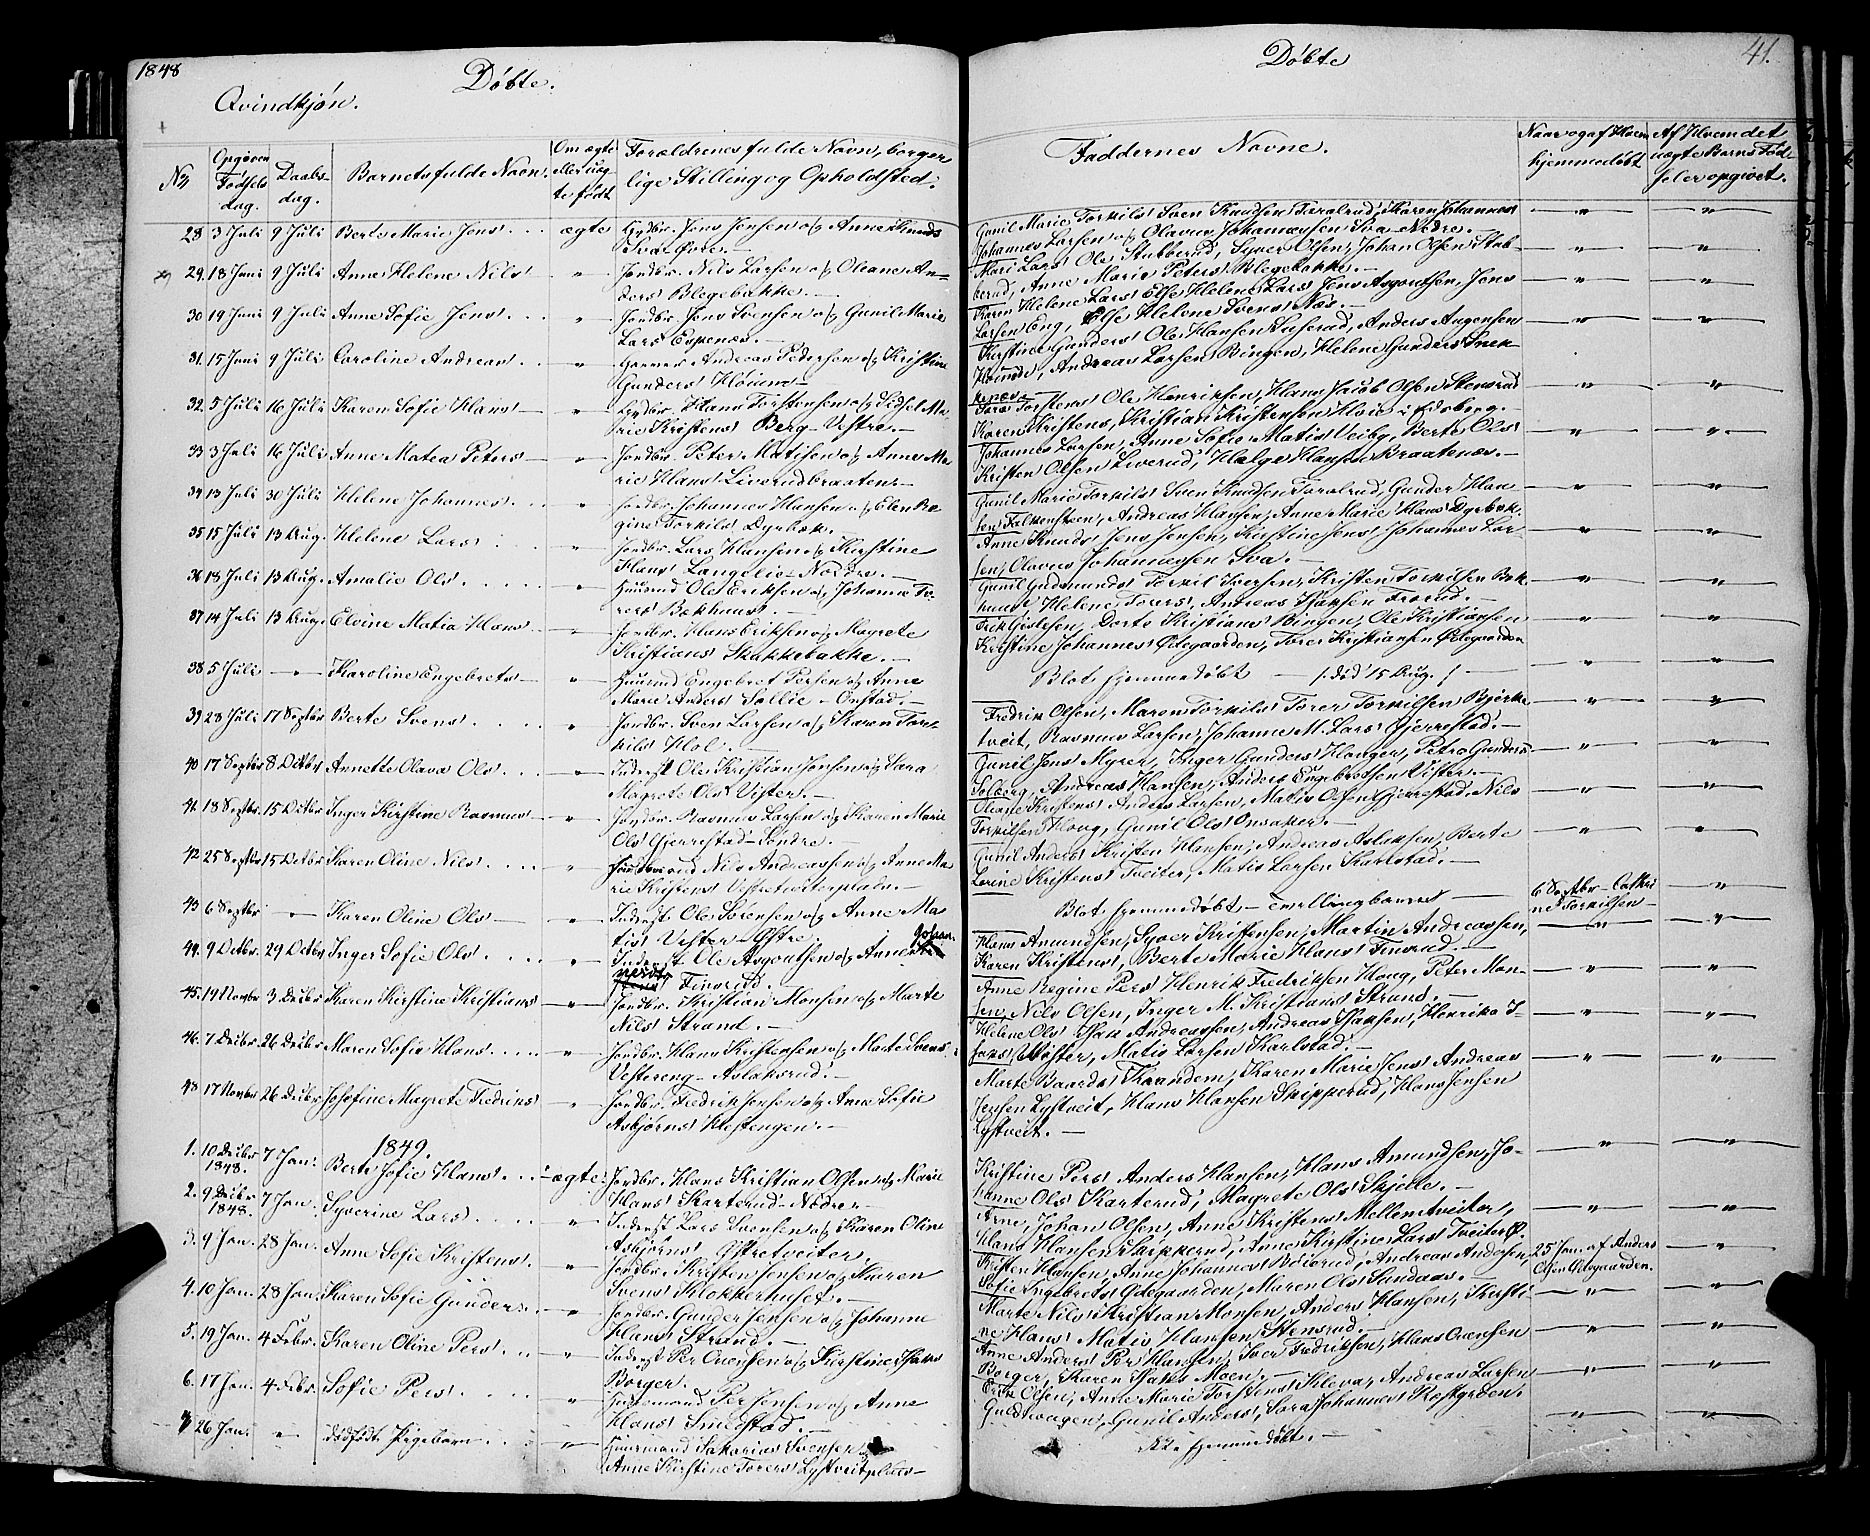 1848
Døbte.
Qvindkjøn.
No
Opgiven Fødsels dag.
Daabsdag.
Barnets fulde Navn.
Om ægte eller uægte født
Forældrenes fulde Navn, borgerlige Stilling og Opholdsted.
28 3 Juli 9 Juli Berte Marie Jens. ægte Gdbr. Jens Jensen og Anne Knuds
Sva Øvre.
29. 18 Juni 9 Juli Anne Helene Nils " Jordbr. Nils Larsen og Oleane An-
ders Blegebakke.—
30 19 Juni 9 Juli Anne Sofie Jens. " Jordbr. Jens Svensen og Gunil Marie
Lars Espenæs.—
31. 15 Juni 9 Juli Caroline Andreas. " Andreas Pedersen og Kirstine
Gunders Høium—
32. 5 Juli 16 Juli Karen Sofie Hans " Hans Torstensen og Sidsel Ma-
rie Kristens Berg-Vestre.—
33 3 Juli 16 Juli Anne Matea Peters " Jordbr. Peter Matisen og Anne Ma-
rie Hans Liverudbraaten—
34 13 Juli 30 Juli Helene Johannes. " Jordbr. Johannes Hansen og Elen Re-
gine Torkils Dyrbæk.—
35 15 Juli 13 Aug. Helene Lars " Jordbr. Lars Hansen og Kirstine
Hans Langelie-Nedre.—
36 18 Juli 13 Aug. Amalie Ols. " Huusmd Ole Eriksen og Johanne To-
rers Bekhuus.—
37 14 Juli 13 Aug. Elvine Matia Hans " Jordbr. Hans Eriksen og Magrete
Kristians Skakkebakke.—
38 5 Juli " Karoline Engebrets " Huusmd Engebret Persen og Anne
Marie Anders Sollie-Onstad.—
39 28 Juli 17 Septbr Berte Svens. " Jordbr. Sven Larsen og Karen Tor-
kils Hol.—
40 17 Septbr 8 Octbr Annette Olava Ols. " Inderst Ole Kristian Jensen og Sara
Magrete Ols Vister.—
41. 18 Septbr. 15 Octbr Inger Kirstine Rasmus " Jordbr. Rasmus Larsen og Karen Marie
Ols Gjerrestad-Søndre.—
42 25 Septbr 15 Octbr Karen Oline Nils. " Nils Andreassen og Anne Ma-
rie Kristens Vestretveiterplads.—
43 6 Septbr " Karen Oline Ols " Inderst Ole Sørensen og Anne Ma-
tis Vister-Østre.
44. 9 Octbr. 29 Octbr Inger Sofie Ols. " Inderst Ole Asgoutsen og Anne
Finsrud.—
45. 19 Novbr 3. Decbr Karen Kirstine Kristians " Jordbr. Kristian Monsen og Marte
Nils Strand.—
46. 7 Decbr. 26 Decbr Maren Sofie Hans. " Jordbr. Hans Kristensen og Marte Svens
Vestereng-Aslaksrud.—
48 17 Novbr 26 Decbr Josefine Magrete Fredriks " Jordbr. Fredrik Jensen og Anne Sofie
Asbjørns Hestengen.—
1849.
1. 10 Decbr 1848. 7 Jan. Berte Sofie Hans. ægte. Jordbr. Hans Kristian Olsen og Marie
Hans Karterud-Nedre.
2. 9 Decbr 1848. 7 Jan. Syverine Lars. " Inderst Lars Svensen og Karen Oline
Asbjørns Østretveiter.
3. 9 Jan. 28 Jan. Anne Sofie Kristens. " Jordbr. Kristen Jensen og Karen
Svens Klokkerhuset.—
4. 10 Jan. 28 Jan. Karen Sofie Gunders. " Jordbr. Gunder Jensen og Johanne
Hans Strand.—
5. 19 Jan. 4 Febr. Karen Oline Pers. " Inderst Per Ovensen og Kirstine Isaks
Borger.
6. 17 Jan. 4 Febr. Sofie Pers. " Per Jensen og Anne
Hans Smedstad.—
7 26 Jan. " dødfødt Pigebarn. " Huusmand Sakarias Svensen og
Anne Kirstine Torers Lystveitplads—
Døbte
41.
Faddernes Navne.
Naar og af Hvem hjemmedøbt
Af Hvem det uægte Barns Fødsel er opgivet.
Gunil Marie Torkils Sven Knudsen Karen Johannes
Johannes Larsen og Olaves Johannessen Sva-Nedre.
Mari Lars Ole Stubberud, Syver Olsen, Johan Olsen Stub-
berud, Anne Marie Peters Blegebakke.—
Karen Helene Lars Else Helene Lars Jens Asgoutsen, Jens
Larsen Eng, Else Helene Svens Næs.—
Kirstine Gunders Ole Hansen Anders Augensen
Høiumd, Andreas Larsen Bingen, Helene Gunders Snek-
kenæs.—
Sara Torstens Ole Henriksen, Hans Jacob Olsen Stensrud
Karen Kristens, Kristian Kristensen Høie i Edsberg.—
Johannes Larsen, Anne Sofie Matis Veiby, Berte Ols
Kristen Olsen Liverud, Helge Hansen Braatenæs.—
Gunil Marie Torkils Sven Knudsen Gunder Han-
sen Falkensteen, Andreas Hansen, Anne Marie Hans Dyrbæk.
Anne Knuds Jens Jensen, Kirstine Jens Johannes Lar-
sen, Olaves Johannessen Sva.—
Gunil Gudmunds Torkil Iversen, Kristen Torkilsen Bek-
huus, Helene Torers, Andreas Isaksen
Erik Gislesen, Dorte Kristians Bingen, Ole Kristiansen
Kirstine Johannes Ødegaarden, Torer Kristiansen Ødegaarden
Blot hjemmedøbt — (død 15 Aug.)
Fredrik Olsen, Maren Torkils Torer Torkilsen Bjerke-
tveit, Rasmus Larsen, Johanne M. Lars Gjerrestad.—
Gunil Jens Myrer, Inger Gunders Hauger, Petra Gunders
Solberg, Andreas Hansen, Anders Engebretsen Vister.—
Oleane Kristens Anders Larsen, Matis Olsen Gjerrestad Nils
Torkilsen Houg, Gunil Ols Onsaker.—
Gunil Anders Kristen Hansen, Andreas Aslaksen, Berte
Lovine Kristens Tveiter, Matis Larsen Karlstad.—
Blot hjemmedøbt — tvillingbarnet — 6 Septbr-Cathri-
ne Torkilsen—
Hans Amundsen, Syver Kristensen, Martin Andreassen,
Karen Kristens, Berte Marie Hans Finsrud.—
Anne Regine Pers Henrik Fredriksen Houg, Peter Mon-
sen, Nils Olsen, Inger M. Kristians Strand.—
Helene Ols Isak Andreassen, Andreas Isaksen, Henrike I-
saks Vister, Matis Larsen Karlstad.—
Marte Baards Kaandem, Karen Marie Jens Andreas
Jensen Lystveit, Hans Hansen Skipperud, Hans Jensen
Lystveit.—
Kristine Pers Anders Hansen, Hans Amundsen, Jo-
hanne Ols Karterud, Magrete Ols Skjelle.—
Arne, Johan Olsen, Anne Kristens Mellemtveiter,
Hans Hansen Skipperud, Anne Kirstine Lars Tveiter Ø.
Kristen Hansen, Anne Johannes Bøierud, Andreas Andersen, 25 Jan. af Anders
Sofie Ingebrets Ødegaarden, Maren Ols Sandaas.— Olsen Ødegaarden.
Marte Nils Kristian Monsen, Anders Hansen, Kirsti-
ne Hans Matis Hansen Stensrud.—
Anne Anders Per Hansen, Iver Fredriksen, Hans Ovensen
Borger, Karen Isaks Moen.—
Erik Olsen, Anne Marie Torstens Kleva, Andreas Larsen
Guldvogen, Gunil Anders, Sara Johannes Rostgrden.
Ikke hjemmedøbt.—